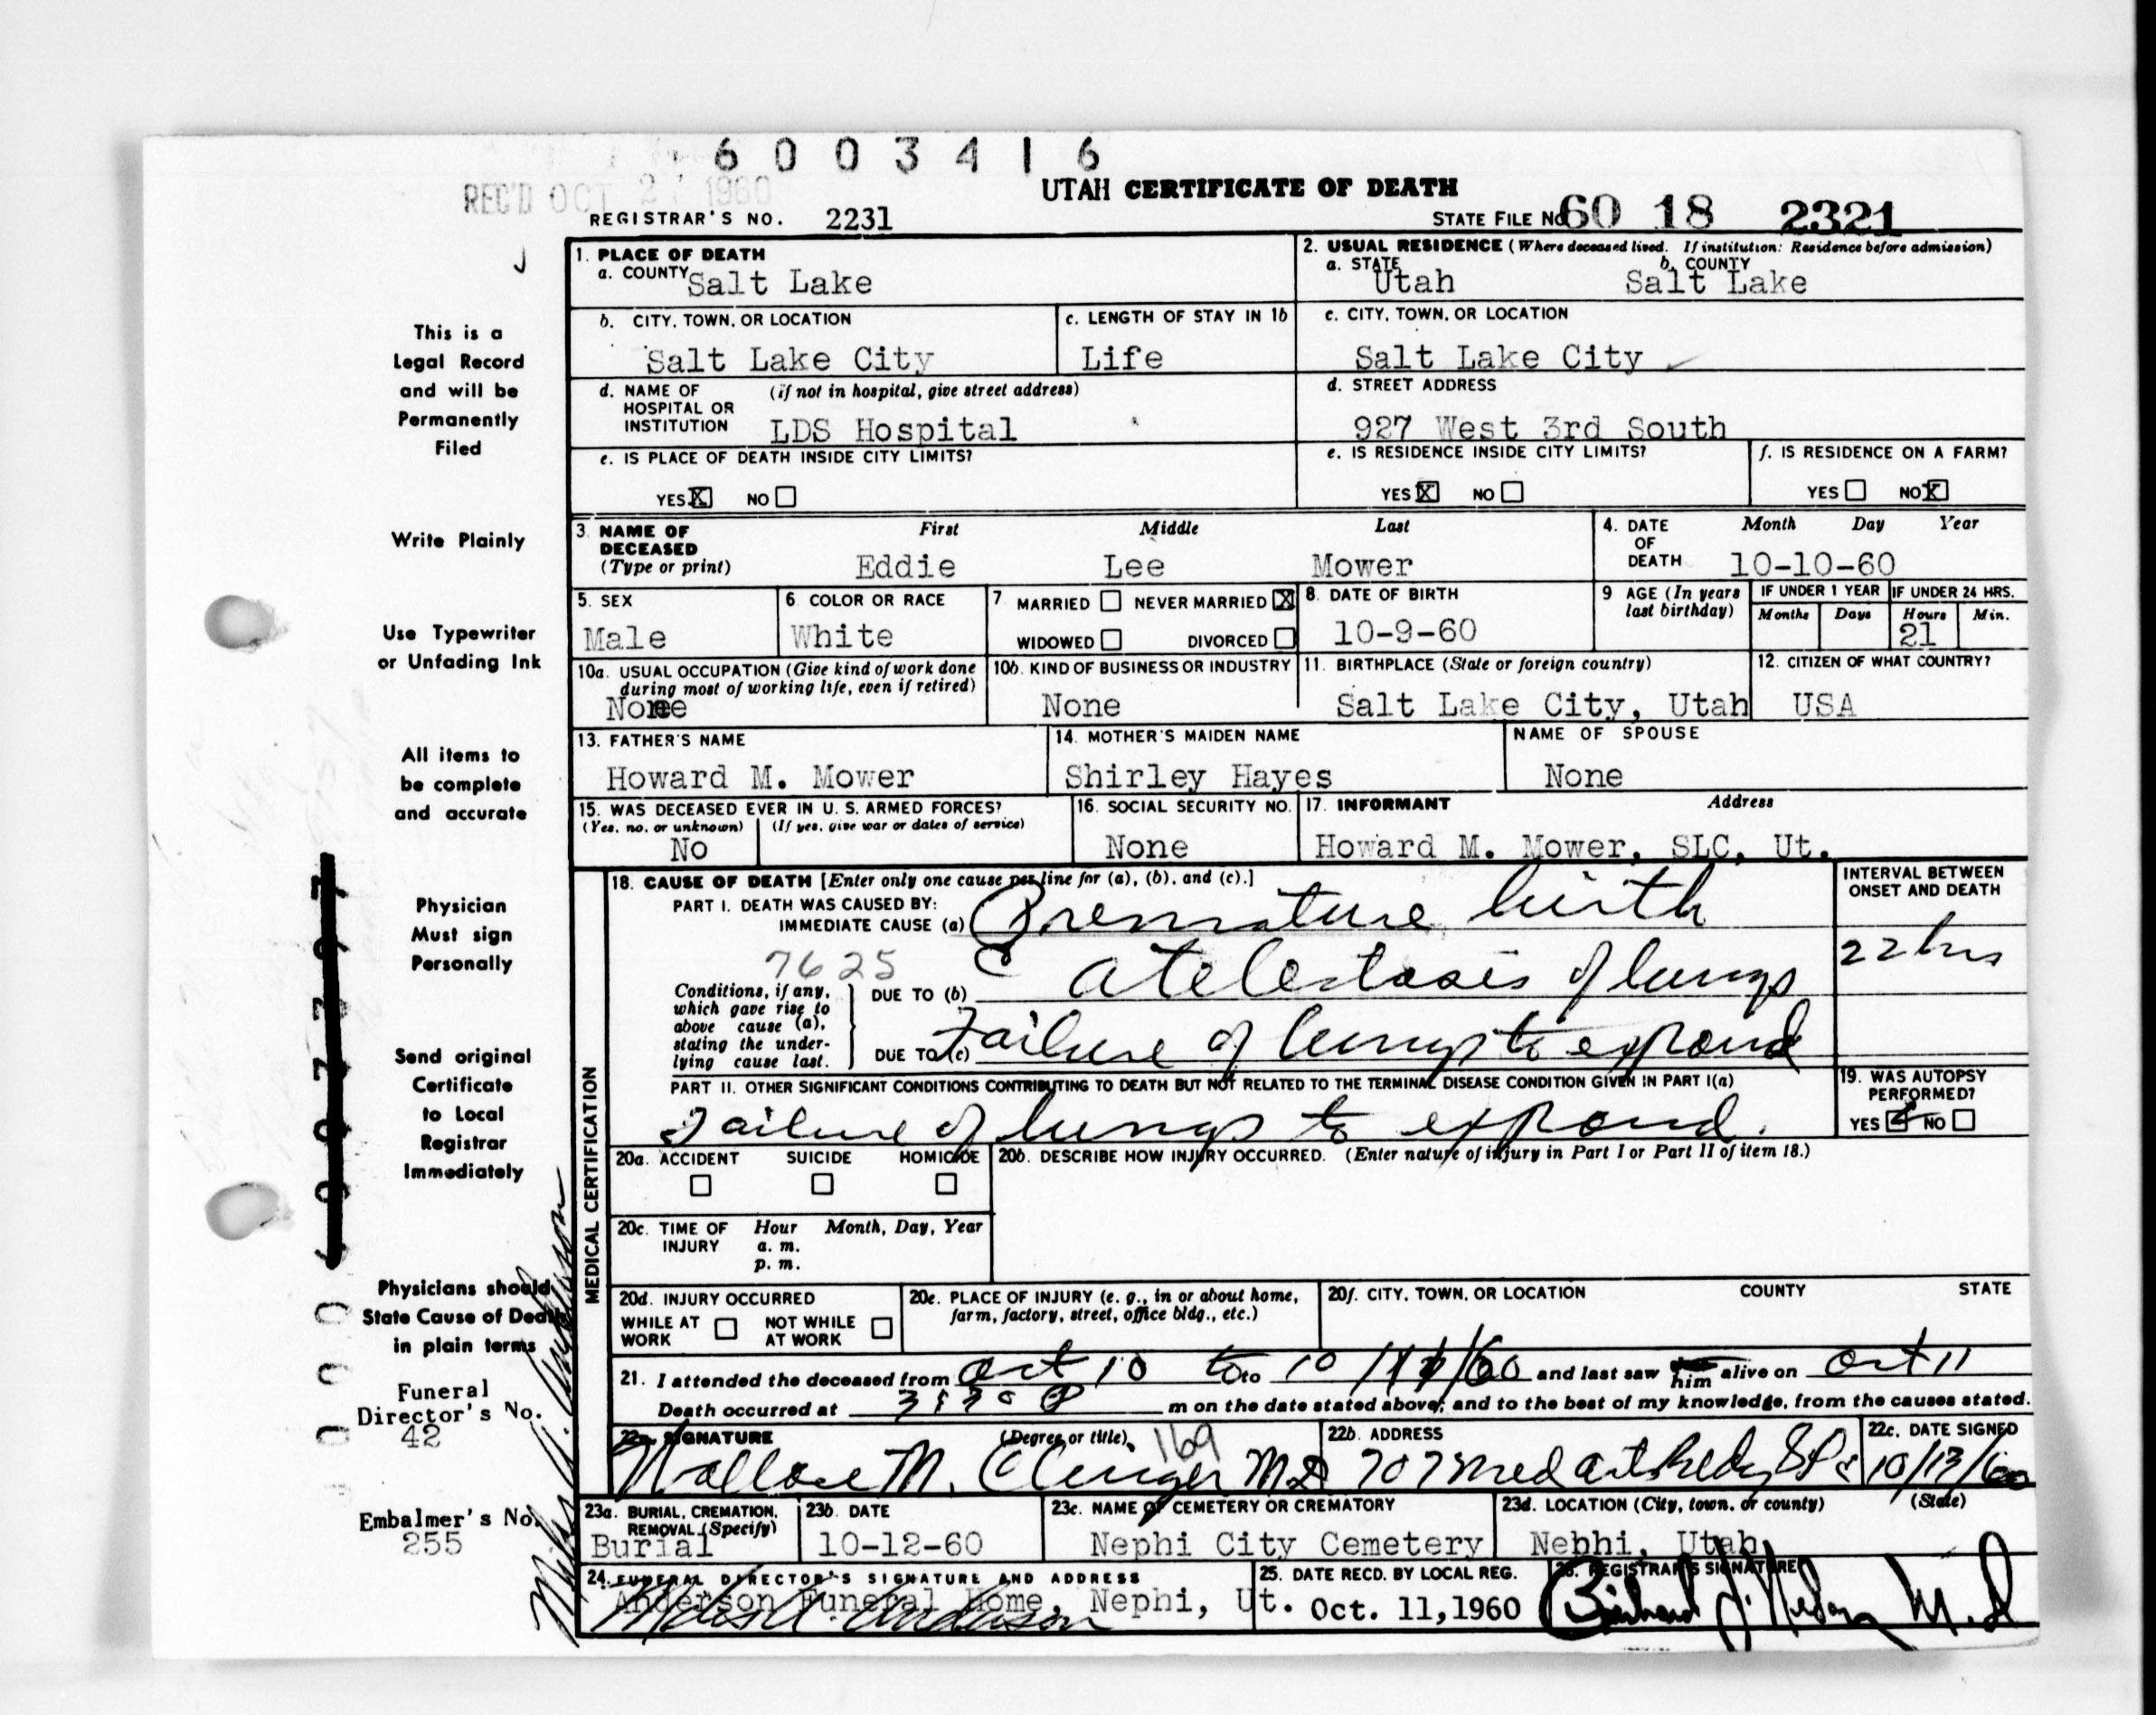 6003416
REC'D OCT 27 1960
UTAH CERTIFICATE OF DEATH
REGISTRAR'S NO. 2231
STATE FILE NO 60 18 2321
1. PLACE OF DEATH
a. COUNTY Salt Lake
2. USUAL RESIDENCE (Where deceased lived. If institution: Residence before admission)
a. STATE Utah b. COUNTY Salt Lake
b. CITY, TOWN, OR LOCATION Salt Lake City
c. LENGTH OF STAY IN 1b Life
c. CITY, TOWN, OR LOCATION Salt Lake City
d. NAME OF HOSPITAL OR INSTITUTION (if not in hospital, give street address) LDS Hospital
d. STREET ADDRESS 927 West 3rd South
e. IS PLACE OF DEATH INSIDE CITY LIMITS?
YES X NO
e. IS RESIDENCE INSIDE CITY LIMITS?
YES X NO
f. IS RESIDENCE ON A FARM?
YES NO X
3. NAME OF DECEASED (Type or print)
First Middle Last
Eddie Lee Mower
4. DATE OF DEATH Month Day Year
10-10-60
5. SEX Male
6. COLOR OR RACE White
7 MARRIED NEVER MARRIED X
WIDOWED DIVORCED
8. DATE OF BIRTH 10-9-60
9 AGE (In years last birthday)
IF UNDER 1 YEAR Months Days
IF UNDER 24 HRS. Hours 21 Min.
10a. USUAL OCCUPATION (Give kind of work done during most of working life, even if retired)
None
10b. KIND OF BUSINESS OR INDUSTRY None
11. BIRTHPLACE (State or foreign country) Salt Lake City, Utah
12. CITIZEN OF WHAT COUNTRY? USA
13. FATHER'S NAME Howard M. Mower
14. MOTHER'S MAIDEN NAME Shirley Hayes
NAME OF SPOUSE None
15. WAS DECEASED EVER IN U. S. ARMED FORCES?
(Yes, no, or unknown) (If yes, give war or dates of service)
No
16. SOCIAL SECURITY NO. None
17. INFORMANT Address
Howard M. Mower, SLC, Ut.
MEDICAL CERTIFICATION
18. CAUSE OF DEATH [Enter only one cause per line for (a), (b), and (c).]
PART I. DEATH WAS CAUSED BY:
IMMEDIATE CAUSE (a) Premature birth
INTERVAL BETWEEN ONSET AND DEATH
22 hrs
7625
Conditions, if any, which gave rise to above cause (a), stating the underlying cause last.
DUE TO (b) c Atelectasis of lungs
DUE TO (c) Failure of lungs to expand
PART II. OTHER SIGNIFICANT CONDITIONS CONTRIBUTING TO DEATH BUT NOT RELATED TO THE TERMINAL DISEASE CONDITION GIVEN IN PART I(a)
Failure of lungs to expand.
19. WAS AUTOPSY PERFORMED?
YES NO
20a. ACCIDENT SUICIDE HOMICIDE
20b. DESCRIBE HOW INJURY OCCURRED. (Enter nature of injury in Part I or Part II of item 18.)
20c. TIME OF INJURY Hour Month, Day, Year
a. m.
p. m.
20d. INJURY OCCURRED
WHILE AT WORK NOT WHILE AT WORK
20e. PLACE OF INJURY (e. g., in or about home, farm, factory, street, office bldg., etc.)
20f. CITY, TOWN, OR LOCATION COUNTY STATE
21. I attended the deceased from Oct 10 to 10/11/60 and last saw him alive on Oct 11
Death occurred at 3:30 P m on the date stated above; and to the best of my knowledge, from the causes stated.
22a. SIGNATURE (Degree or title) 169
Wallace M. Clinger MD
22b. ADDRESS 707 Med Arts Bldg
22c. DATE SIGNED 10/13/60
23a. BURIAL, CREMATION, REMOVAL (Specify) Burial
23b. DATE 10-12-60
23c. NAME OF CEMETERY OR CREMATORY Nephi City Cemetery
23d. LOCATION (City, town, or county) (State) Nephi, Utah
24. FUNERAL DIRECTOR'S SIGNATURE AND ADDRESS
Anderson Funeral Home, Nephi, Ut.
Miles A. Anderson
25. DATE RECD. BY LOCAL REG. Oct. 11, 1960
26. REGISTRAR'S SIGNATURE
M.D
This is a
Legal Record
and will be
Permanently
Filed
Write Plainly
Use Typewriter
or Unfading Ink
All items to
be complete
and accurate
Physician
Must sign
Personally
Send original
Certificate
to Local
Registrar
Immediately
Physicians should
State Cause of Death
in plain terms
Funeral
Director's No.
42
Embalmer's No.
255
Miles A. Anderson